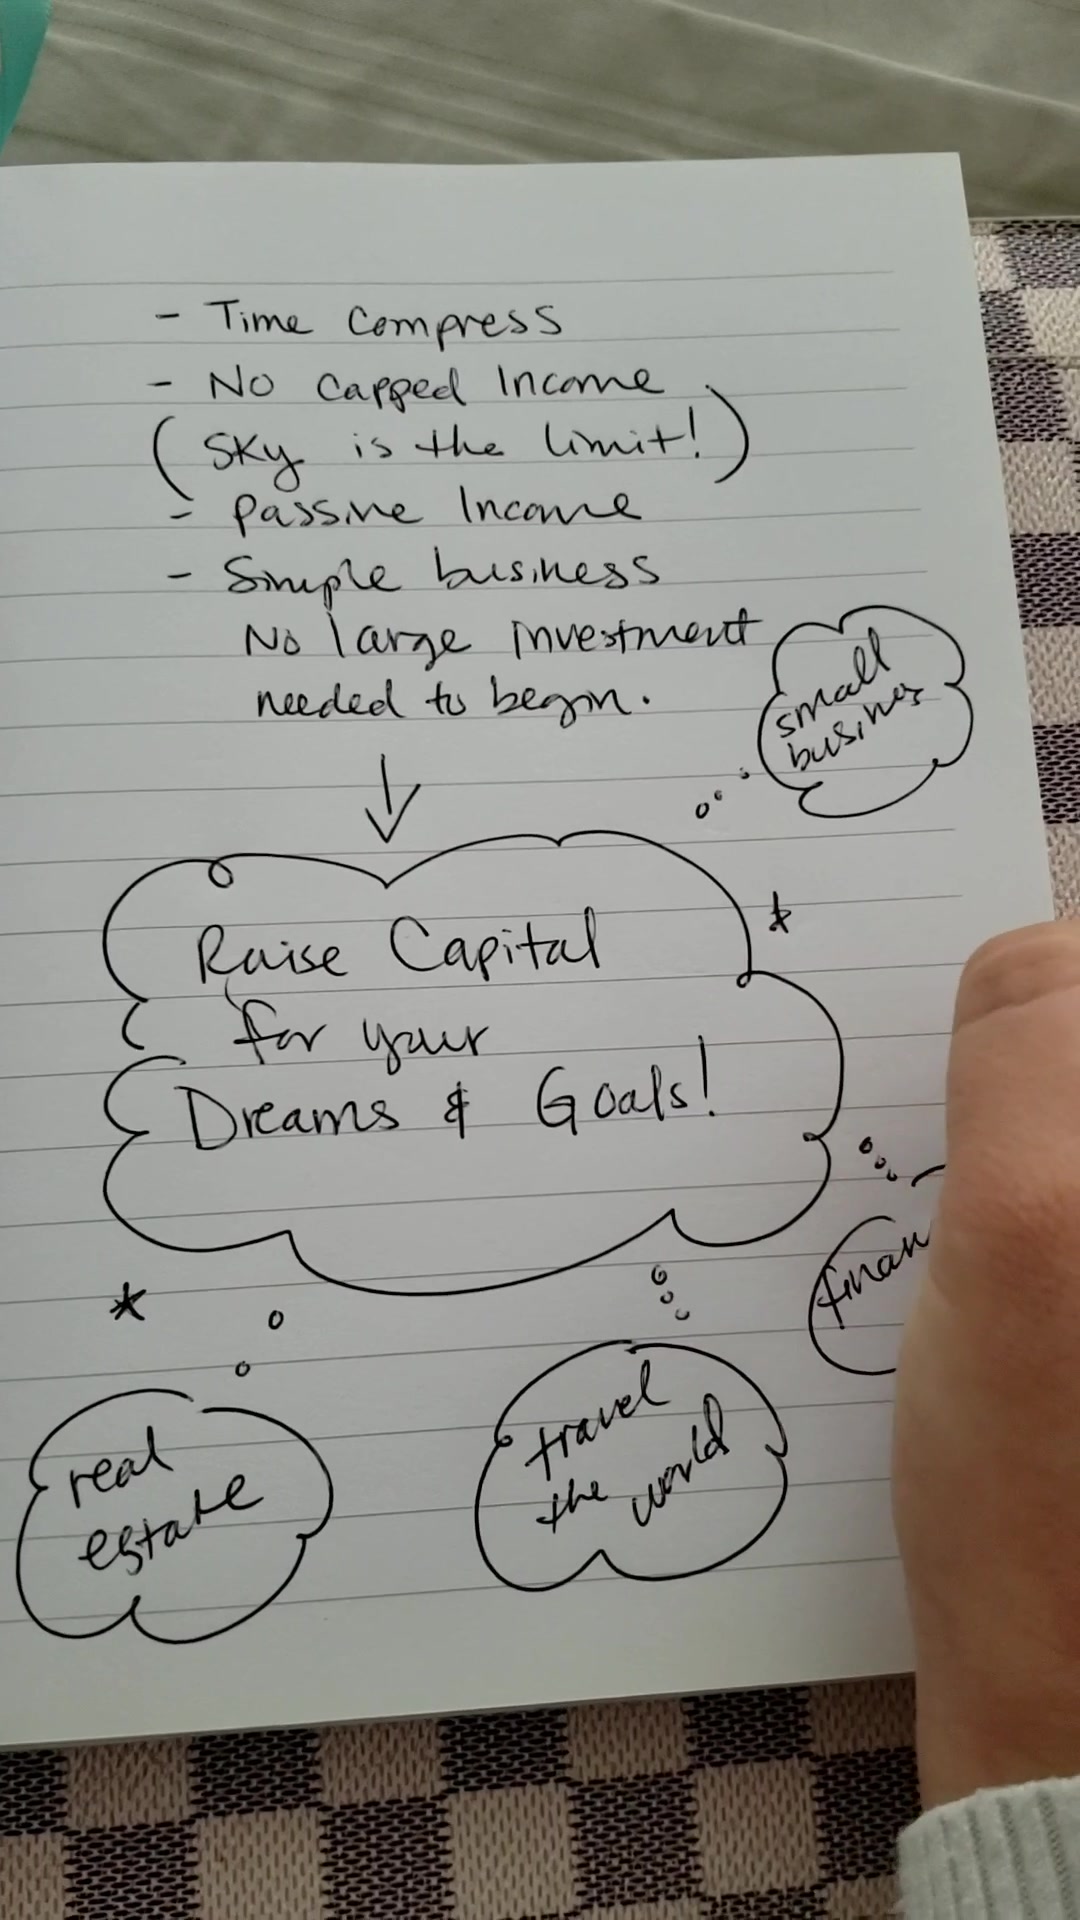 - Time Compress
- No Capped Income
(Sky is the limit!)
- Passive Income
- Simple business
No large investment
needed to begin.
small
business
Raise Capital
for your
Dreams & Goals!
finan
real
estate
travel
the world